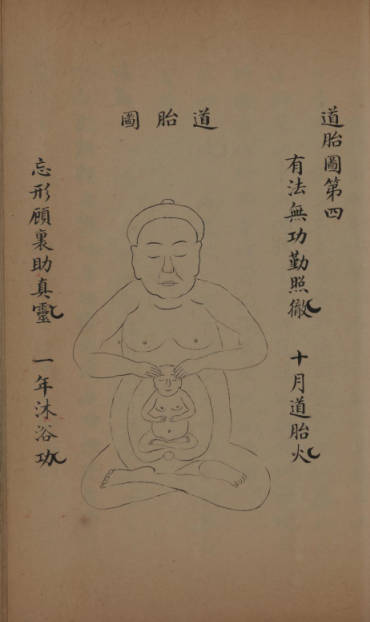 道胎圖第四
有法無功勤照徹
十月道胎火
道胎圖
忘形顧裏助真靈
一年沐浴功